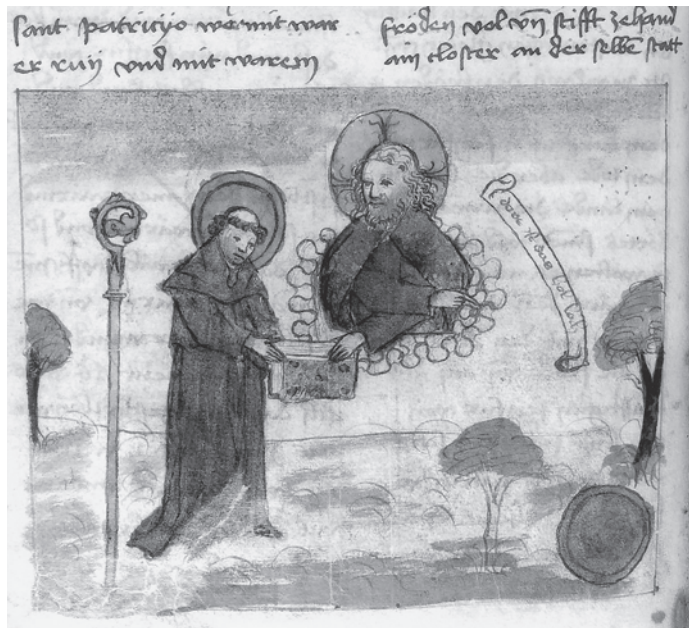 sant patricio wermit war
er ruij vnd mit warem
fröden vol vn̄ stifft zehand
ain closter an der selben statt
das ist das